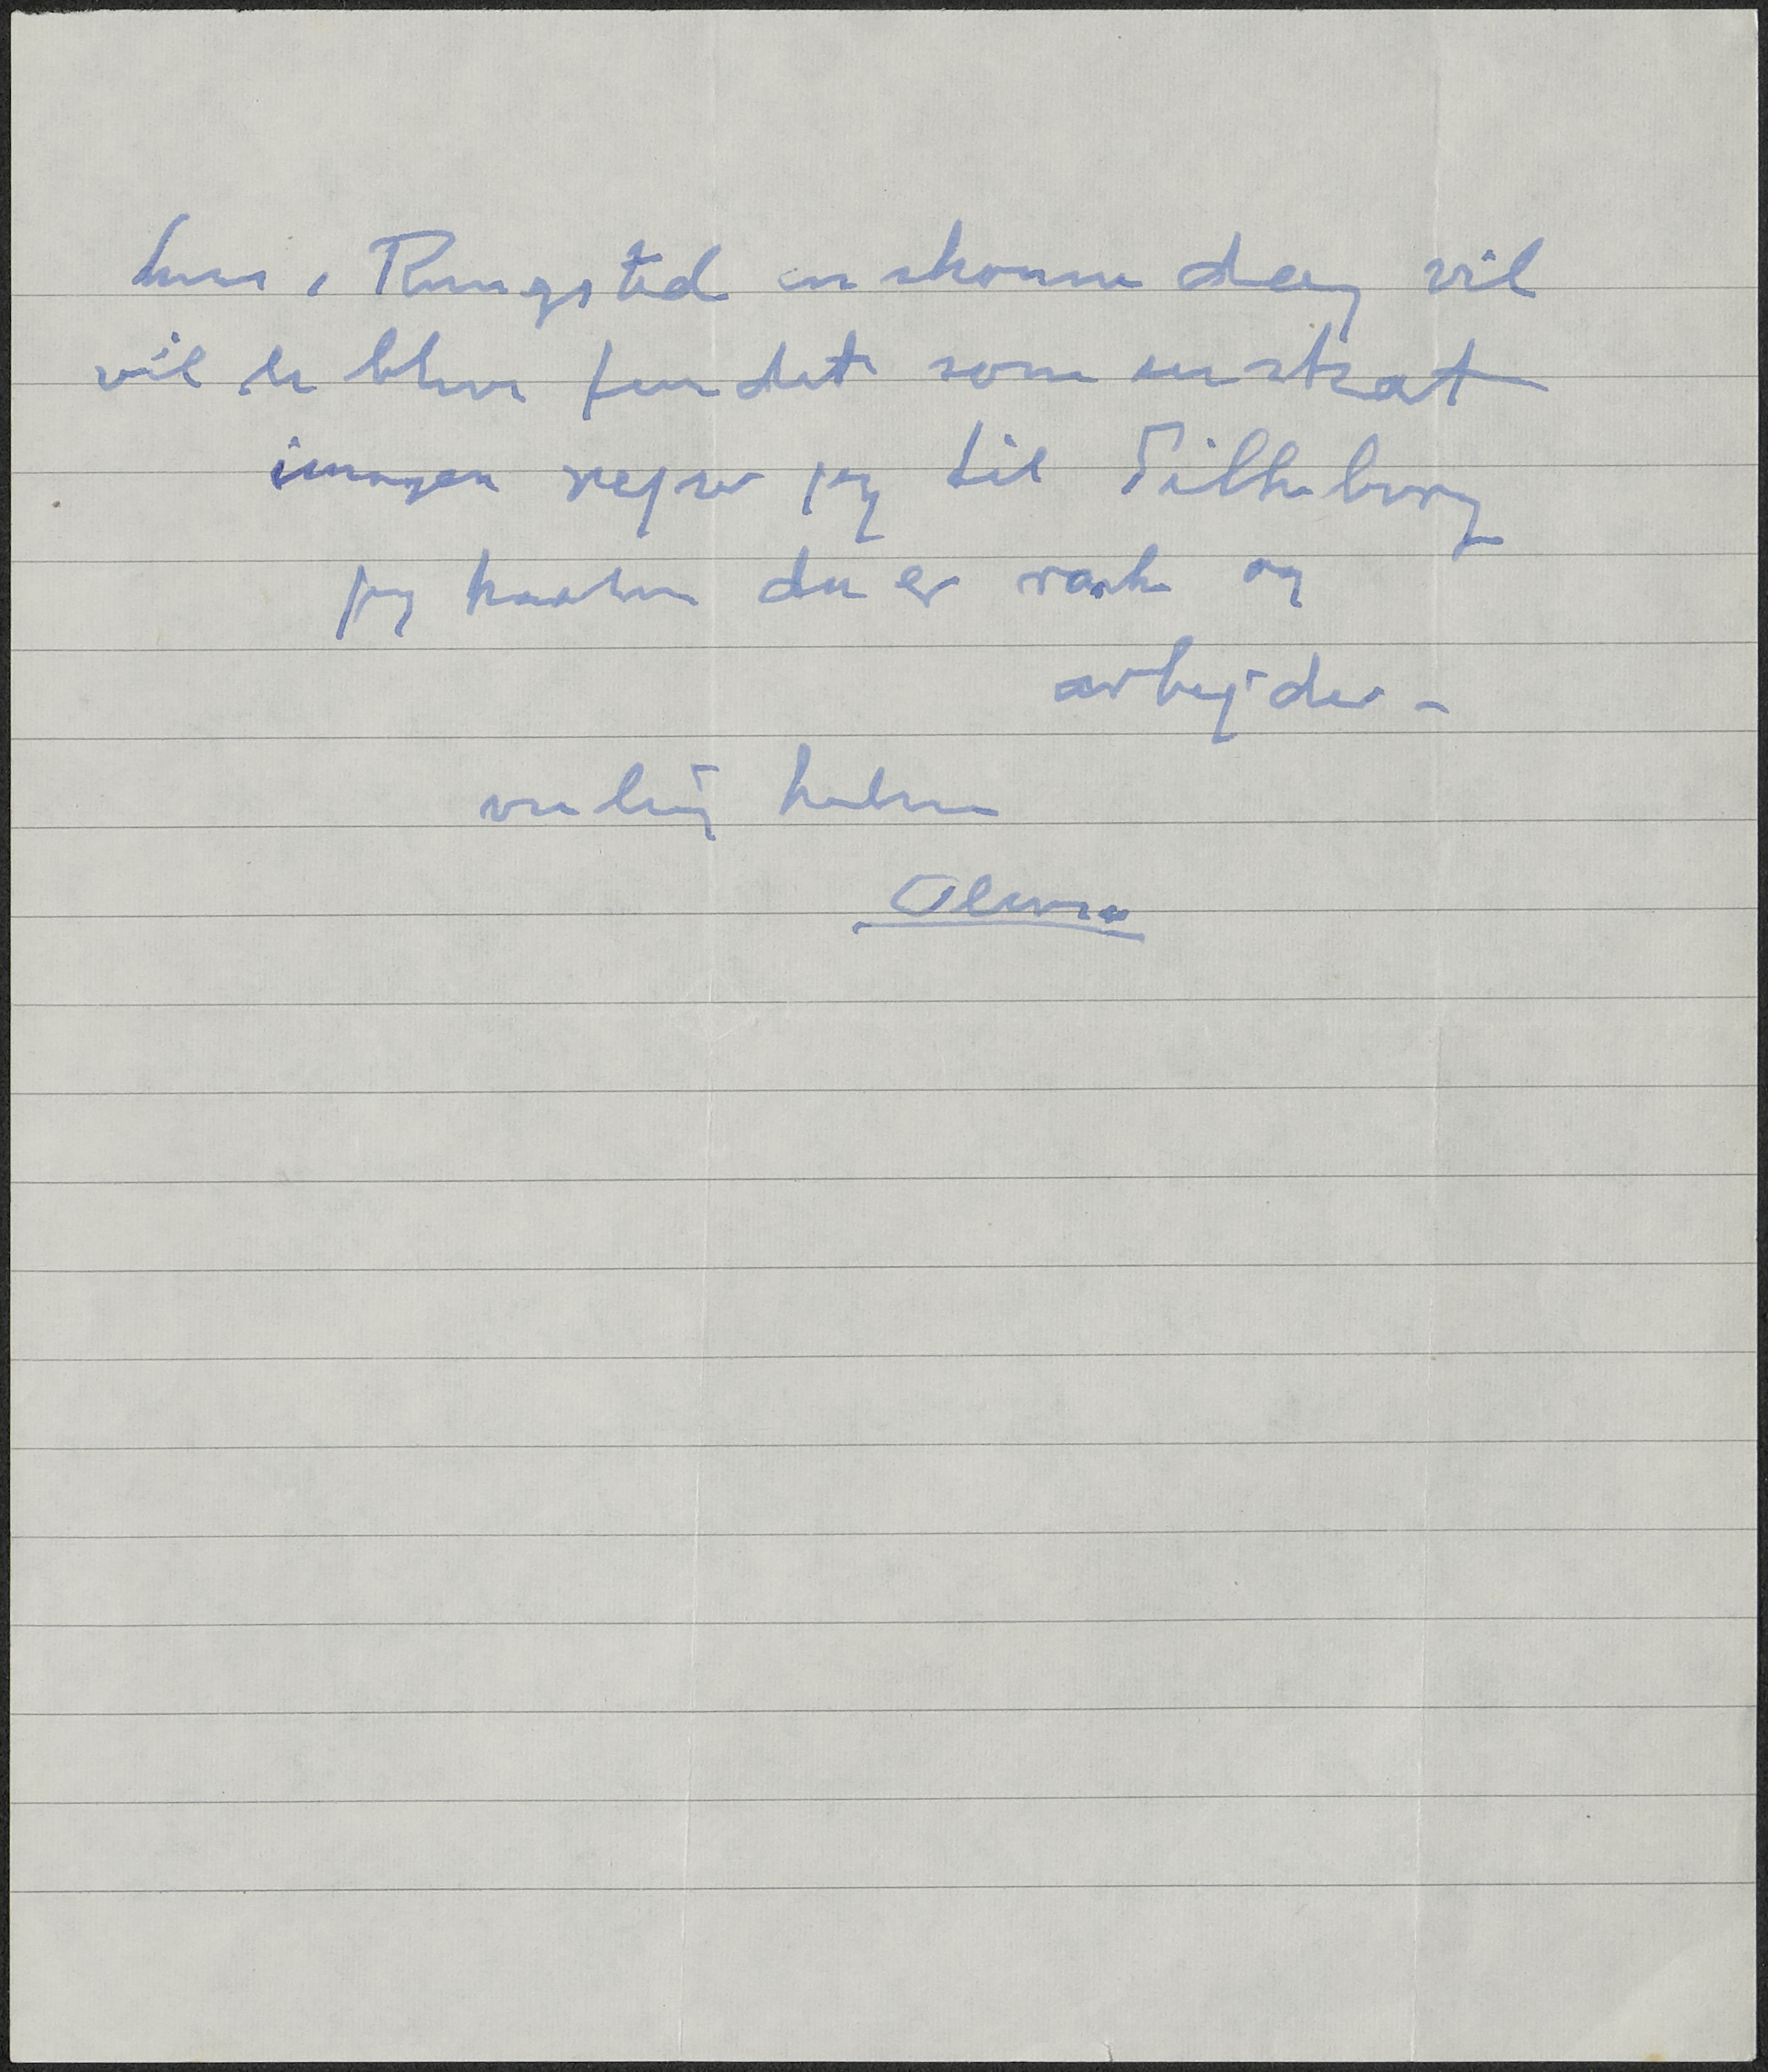 hus i Rungsted en skønne dag vil
vil de blive fundet som en skat
imorgen rejser jeg til Silkeborg
jeg haaber du er rask og
arbejder –
venlig hilsen